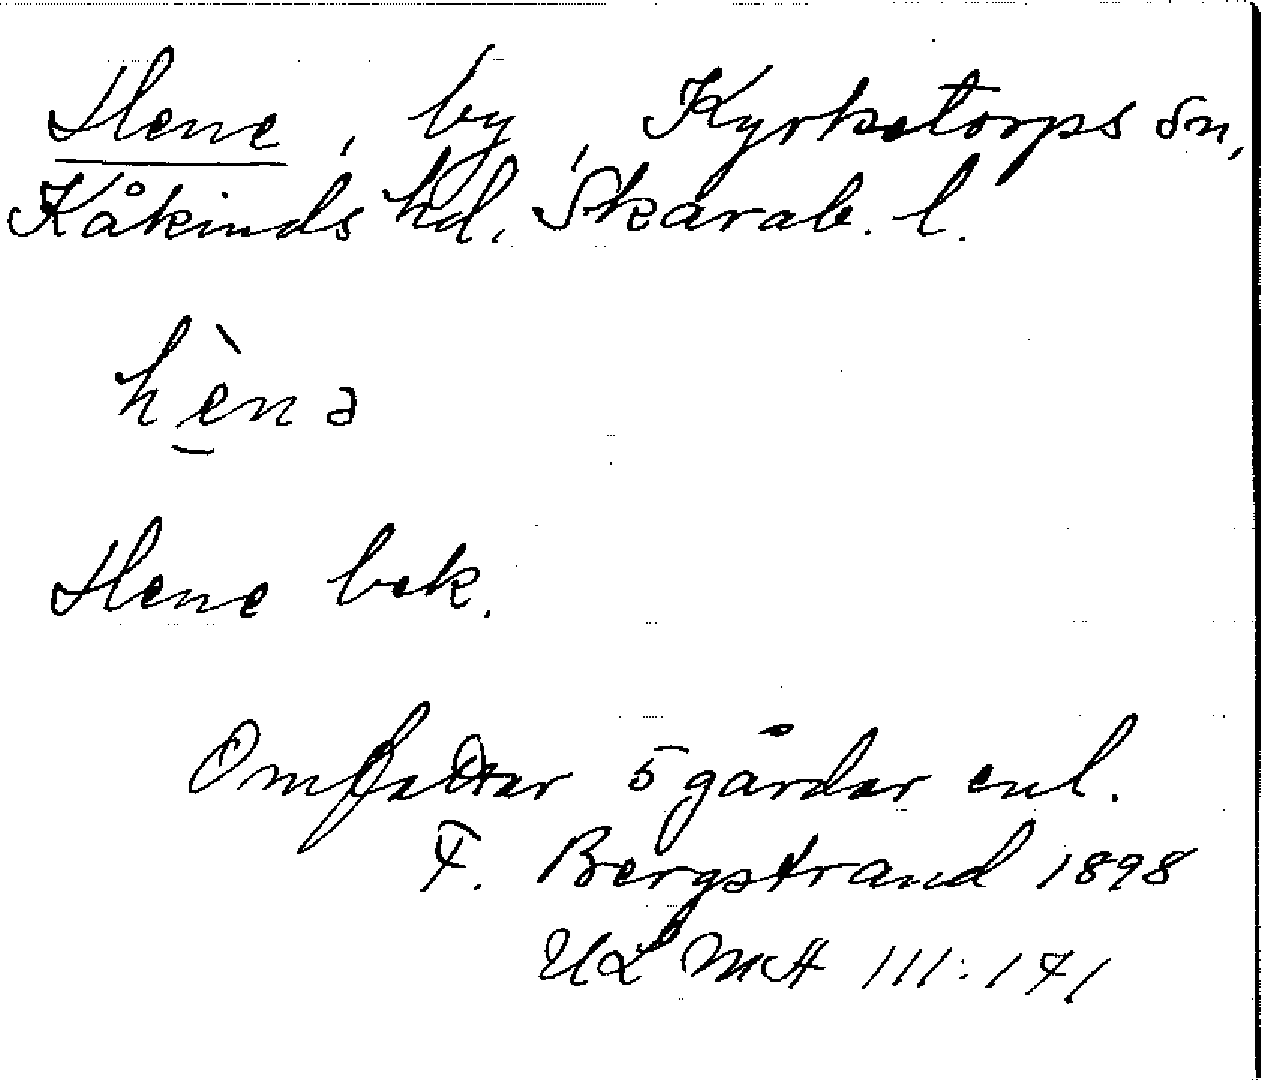 Hene, by, Kyrketorps sn,
Kåkinds hd, Skarab. l.
hènə
Hene bek.
Omfattar 5 gårdar enl.
F. Bergstrand 1898
ULMA 111:141